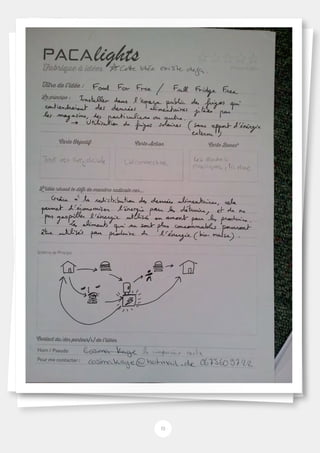 PACAlights
Fabrique à idées ☆ Cette idée existe déjà.
Titre de l'idée : Food For Free / Full Fridge Free
Le principe : Installer dans l'espace public de frigos qui
contiendraient des denrées alimentaires gâtées par
les magasins, des particuliers ou autre.
→ Utilisation de frigos solaires (sans apport d'énergie
externe !)
Carte Objectif Carte Action Carte Bonus
Tout est recyclable
L'idée résout le défi de manière radicale car...
Grâce à la redistribution des denrées alimentaires, cela
permet d'économiser l'énergie pour les détruire, et de ne
pas gaspiller l'énergie utilisée en amont pour les produire.
Les aliments qui ne sont plus consommables pourront
être utilisés pour produire de l'énergie (bio masse).
Schéma de Principe
Contact du/des porteur(s) de l'idée
Nom / Pseudo :
Pour me contacter :
10